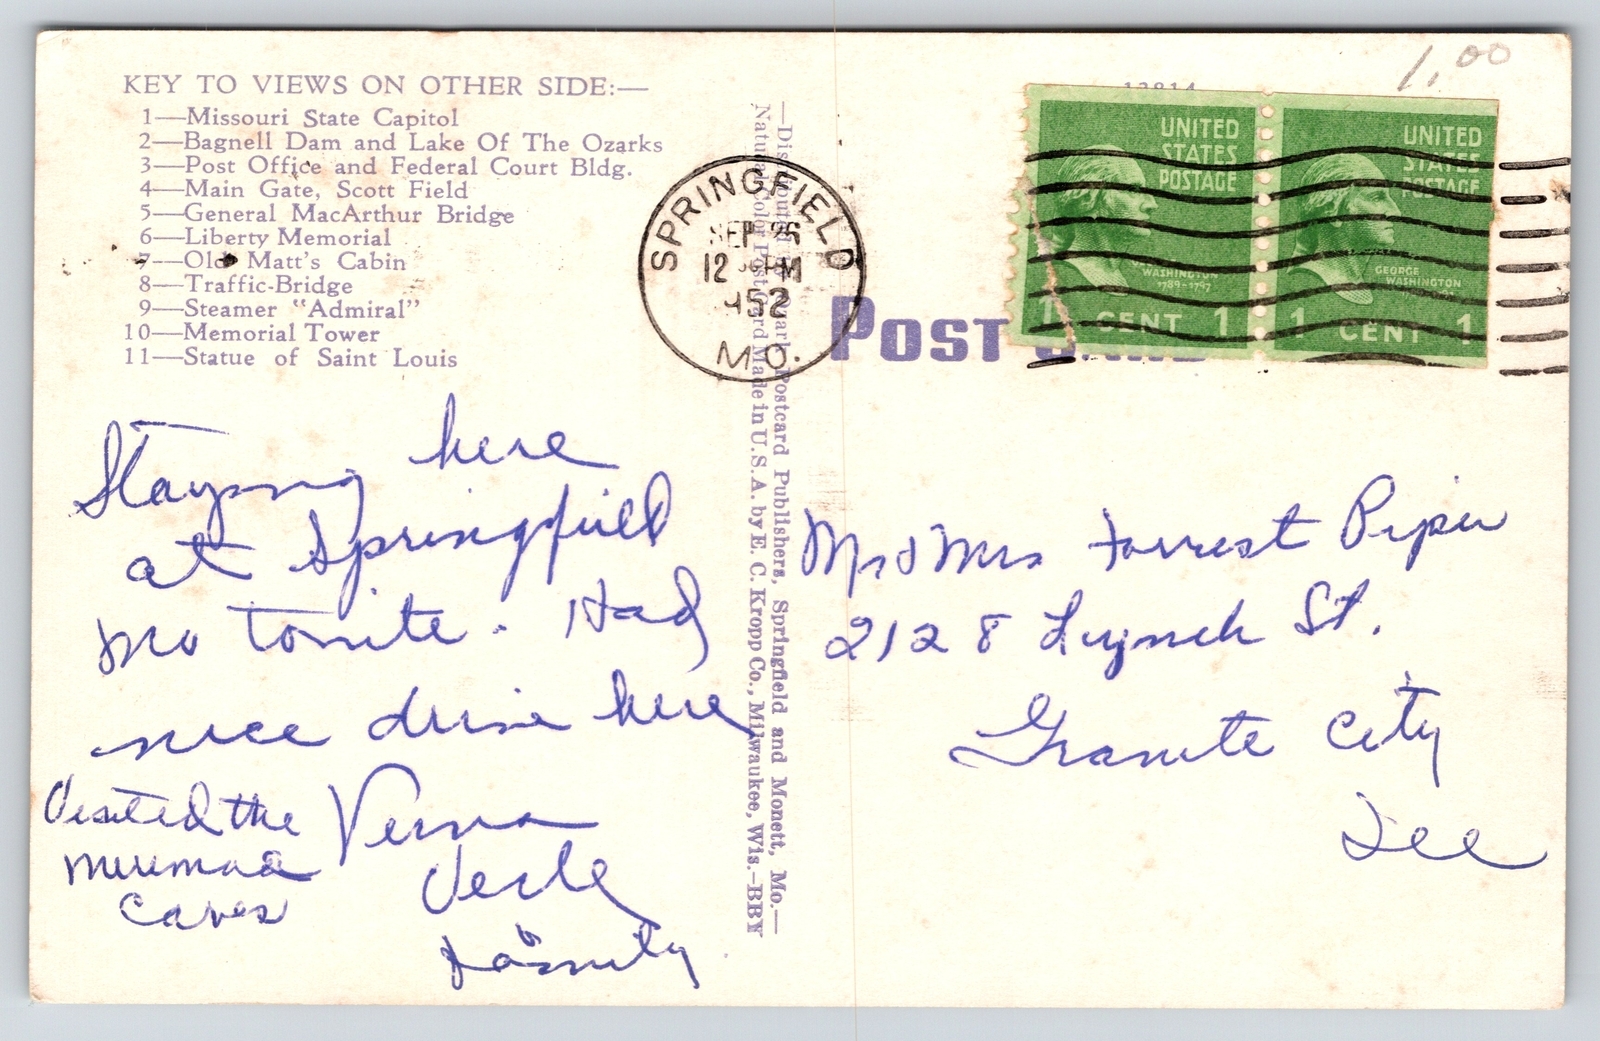 1.00
KEY TO VIEWS ON OTHER SIDE:—
1—Missouri State Capitol
2—Bagnell Dam and Lake Of The Ozarks
3—Post Office and Federal Court Bldg.
4—Main Gate, Scott Field
5—General MacArthur Bridge
6—Liberty Memorial
7—Old Matt's Cabin
8—Traffic-Bridge
9—Steamer "Admiral"
10—Memorial Tower
11—Statue of Saint Louis
SPRINGFIELD
SEP 26
12 M
1952
MO.
UNITED
STATES
POSTAGE
GEORGE
WASHINGTON
1789-1797
1 CENT 1
UNITED
STATES
POSTAGE
GEORGE
WASHINGTON
1 CENT 1
POST CARD
Postcard Publishers, Springfield and Monett, Mo.—
Natural Color Post Card Made in U.S.A. by E. C. Kropp Co., Milwaukee, Wis.—BBY
Staying here
at Springfield
Mo tonite. Had
nice drive here
Visited the
Meremac
Caves
Verna
Verle
& Family
Mr & Mrs Forrest Piper
2128 Lynch St.
Granite City
Ill